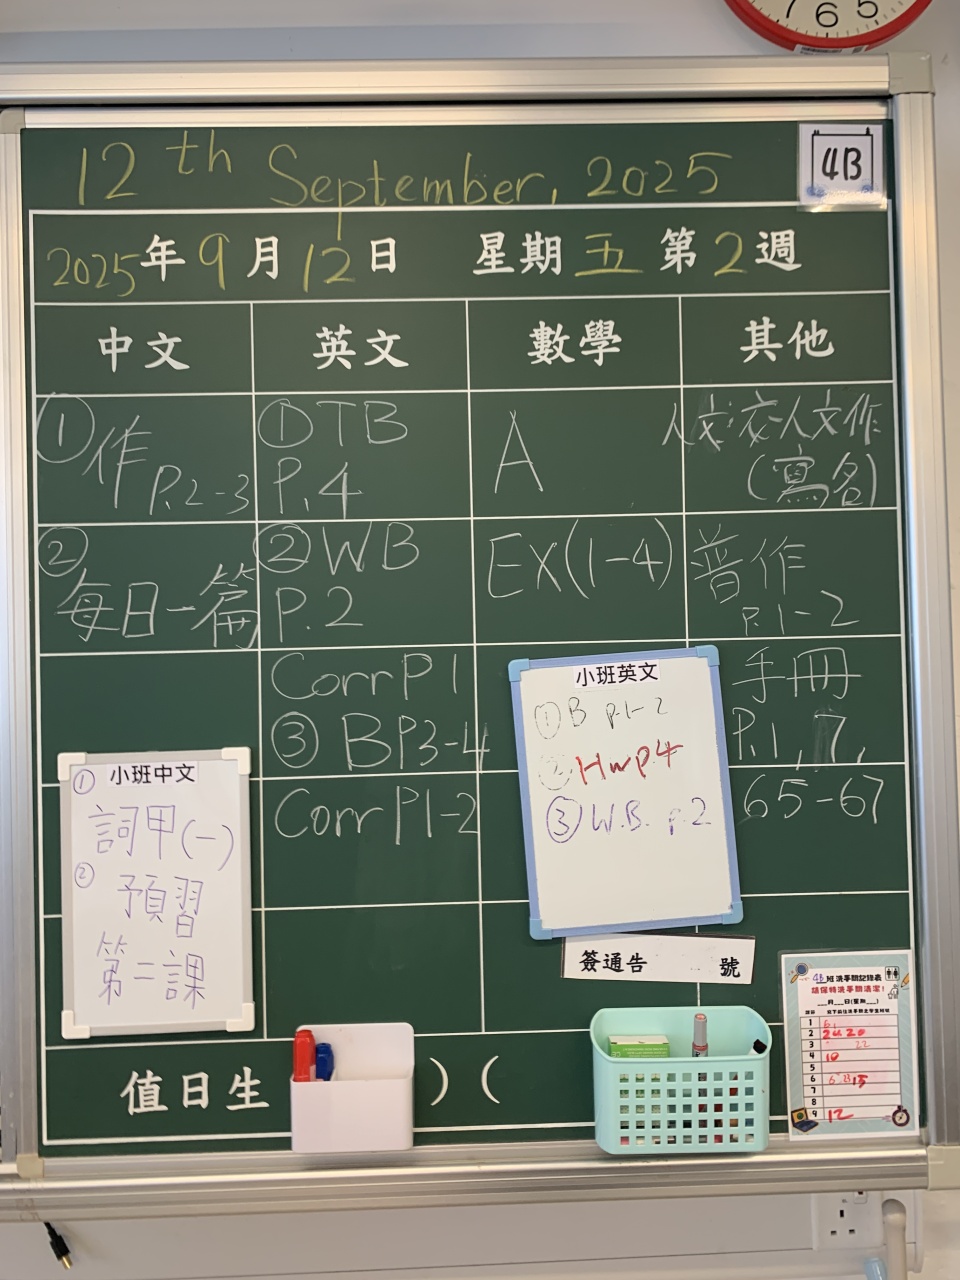 7 6 5
12th September, 2025
4B
2025年9月12日 星期五 第2週
中文 英文 數學 其他
①作 P.2-3
②每日一篇
①TB P.4
②WB P.2
Corr P1
③ B P3-4
Corr P1-2
A
EX(1-4)
人文作
(寫名)
普作
P.1-2
手冊
P.1, 7,
65-67
小班中文
① 詞甲(一)
② 預習
第二課
小班英文
① B p.1-2
② Hw p4
③ W.B. p.2
簽通告 號
值日生 ) (
4B班洗手間記錄表
請保持洗手間清潔!
___月___日(星期___)
1 6,
2 24 20
3 22
4 10
5
6 15
7
8
9 12